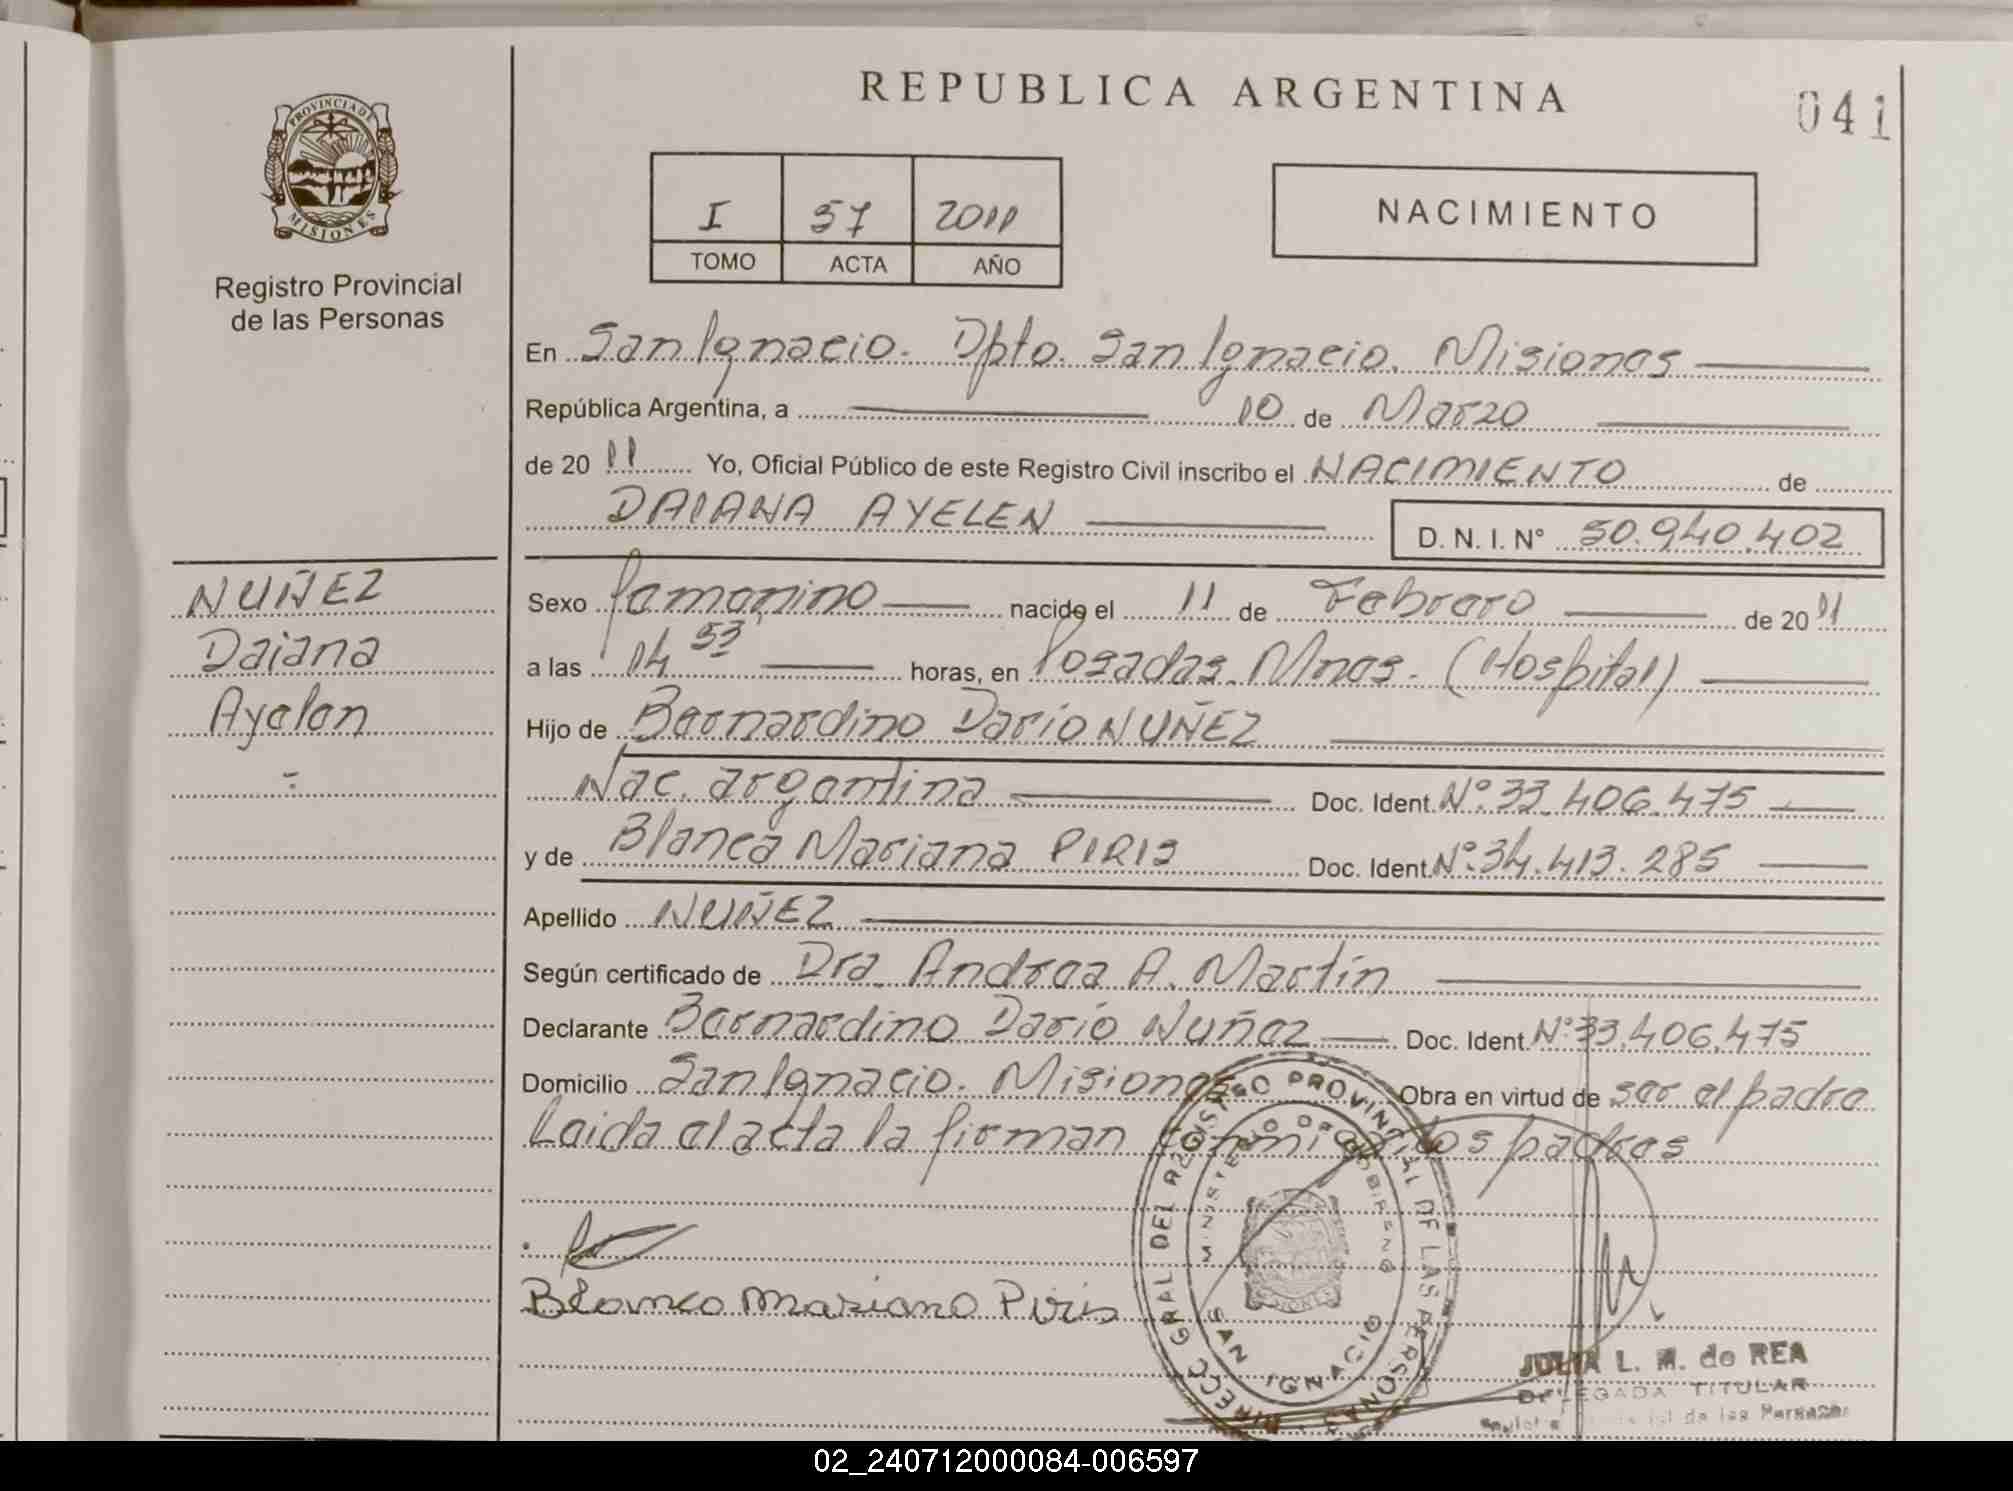 REPUBLICA ARGENTINA
041
PROVINCIA DE
MISIONES
Registro Provincial
de las Personas
I 57 2011
TOMO ACTA AÑO
NACIMIENTO
En San Ignacio. Dpto. San Ignacio. Misiones
República Argentina, a 10 de Marzo
de 20 11 Yo, Oficial Público de este Registro Civil inscribo el NACIMIENTO de
DAIANA AYELEN D. N. I. N° 50.940.402
NUÑEZ
Daiana
Ayelen
Sexo femenino nacido el 11 de Febrero de 20 11
a las 14 53 horas, en Posadas. Mnes. (Hospital)
Hijo de Bernardino Darío NUÑEZ
Nac. argentina Doc. Ident. N° 33.406.475
y de Blanca Mariana PIRIS Doc. Ident. N° 34.413.285
Apellido NUÑEZ
Según certificado de Dra. Andrea A. Martín
Declarante Bernardino Darío Nuñez Doc. Ident. N° 33.406.475
Domicilio San Ignacio. Misiones Obra en virtud de ser el padre
Leida el acta la firman conmigo los padres
Blanca Mariana Piris
DIRECC GRAL DEL REGISTRO PROVINCIAL DE LAS PERSONAS
MINISTERIO DE GOBIERNO
SAN IGNACIO
JULIA L. M. de REA
DELEGADA TITULAR
de las Personas
02_240712000084-006597